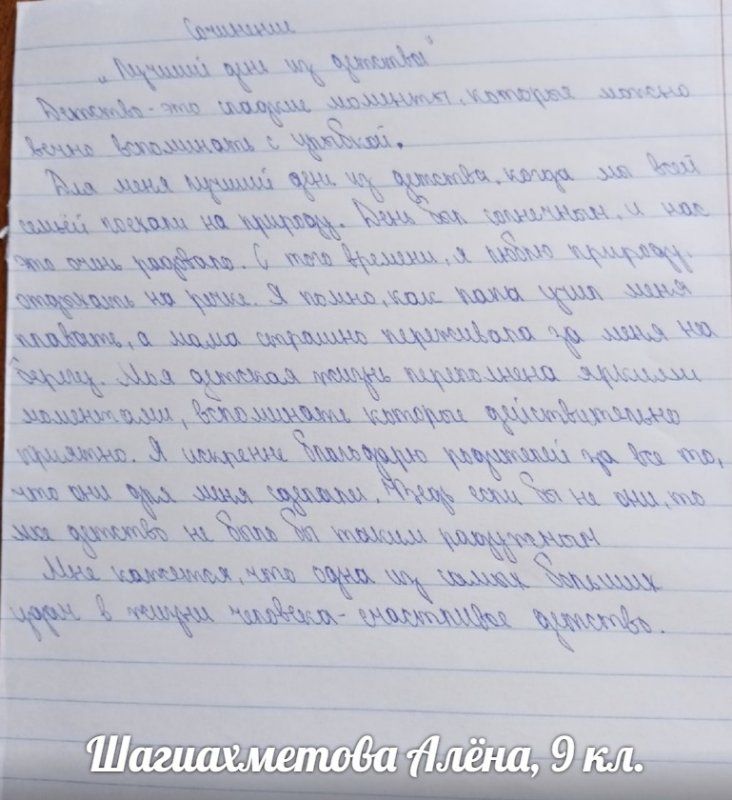 Сочинение
„Лучший день из детства"
Детство - это сладкие моменты, которые можно
вечно вспоминать с улыбкой.
Для меня лучший день из детства, когда мы всей
семьёй поехали на природу. День был солнечным, и нас
это очень радовало. С того времени, я люблю природу,
отдыхать на речке. Я помню, как папа учил меня
плавать, а мама страшно переживала за меня на
берегу. Моя детская жизнь переполнена яркими
моментами, вспоминать которые действительно
приятно. Я искренне благодарю родителей за все то,
что они для меня сделали. Ведь если бы не они, то
мое детство не было бы таким радужным
Мне кажется, что одна из самых больших
удач в жизни человека - счастливое детство.
Шагиахметова Алёна, 9 кл.